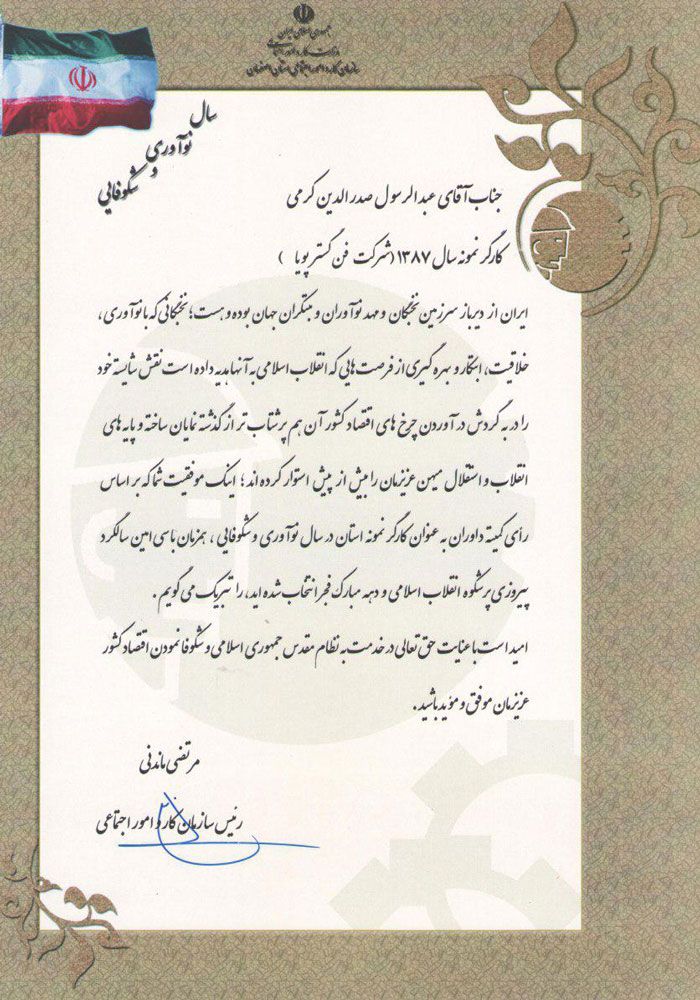 جمهوری اسلامی ایران
وزارت کار و امور اجتماعی
سازمان کار و امور اجتماعی استان اصفهان
سال
نوآوری
و
شکوفایی
جناب آقای عبدالرسول صدرالدین کرمی
کارگر نمونه سال ۱۳۸۷ (شرکت فن گستر پویا )
ایران از دیرباز سرزمین نخبگان و مهد نوآوران و مبتکران جهان بوده و هست؛ نخبگانی که با نوآوری،
خلاقیت، ابتکار و بهره گیری از فرصت هایی که انقلاب اسلامی به آنها هدیه داده است نقش شایسته خود
را در به گردش در آوردن چرخ های اقتصاد کشور آن هم پرشتاب تر از گذشته نمایان ساخته و پایه های
انقلاب و استقلال میهن عزیزمان را بیش از پیش استوار کرده اند؛ اینک موفقیت شما که بر اساس
رأی کمیته داوران به عنوان کارگر نمونه استان در سال نوآوری و شکوفایی، همزمان با سی امین سالگرد
پیروزی پرشکوه انقلاب اسلامی و دهه مبارک فجر انتخاب شده اید، را تبریک می گویم.
امید است با عنایت حق تعالی در خدمت به نظام مقدس جمهوری اسلامی و شکوفا نمودن اقتصاد کشور
عزیزمان موفق و مؤید باشید.
مرتضی ماندنی
رئیس سازمان کار و امور اجتماعی